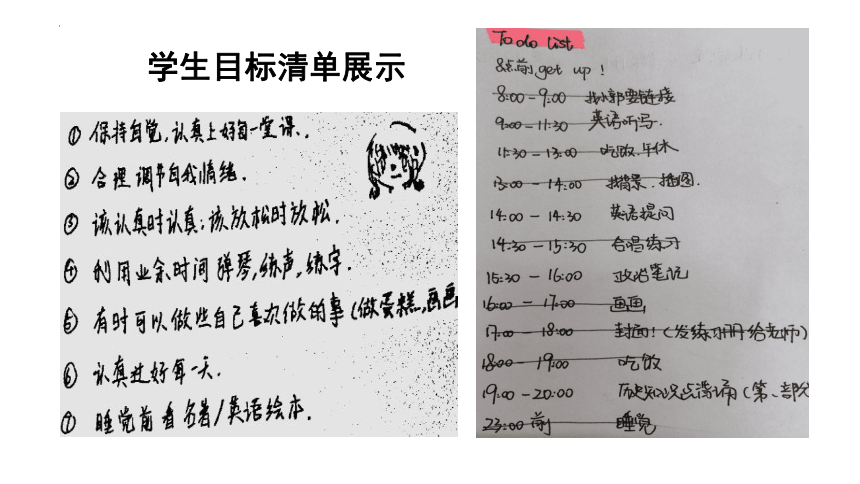 学生目标清单展示
① 保持自觉,认真上好每一堂课.
② 合理调节自我情绪.
③ 该认真时认真;该放松时放松.
④ 利用业余时间弹琴,练声,练字.
⑤ 有时可以做些自己喜欢做的事(做蛋糕,画画
⑥ 认真过好每一天.
⑦ 睡觉前看名著/英语绘本.
To do list
8点前 get up !
8:00-9:00 要链接
9:00-11:30 英语听写.
11:30-13:00 吃饭.午休
13:00-14:00 找背景.插图.
14:00-14:30 英语提问
14:30-15:30 合唱练习
15:30-16:00 政治笔记
16:00-17:00 画画
17:00-18:00 封面!(发练习册给老师)
18:00-19:00 吃饭
19:00-20:00 历史知识点背诵(第一部分
23:00前 睡觉